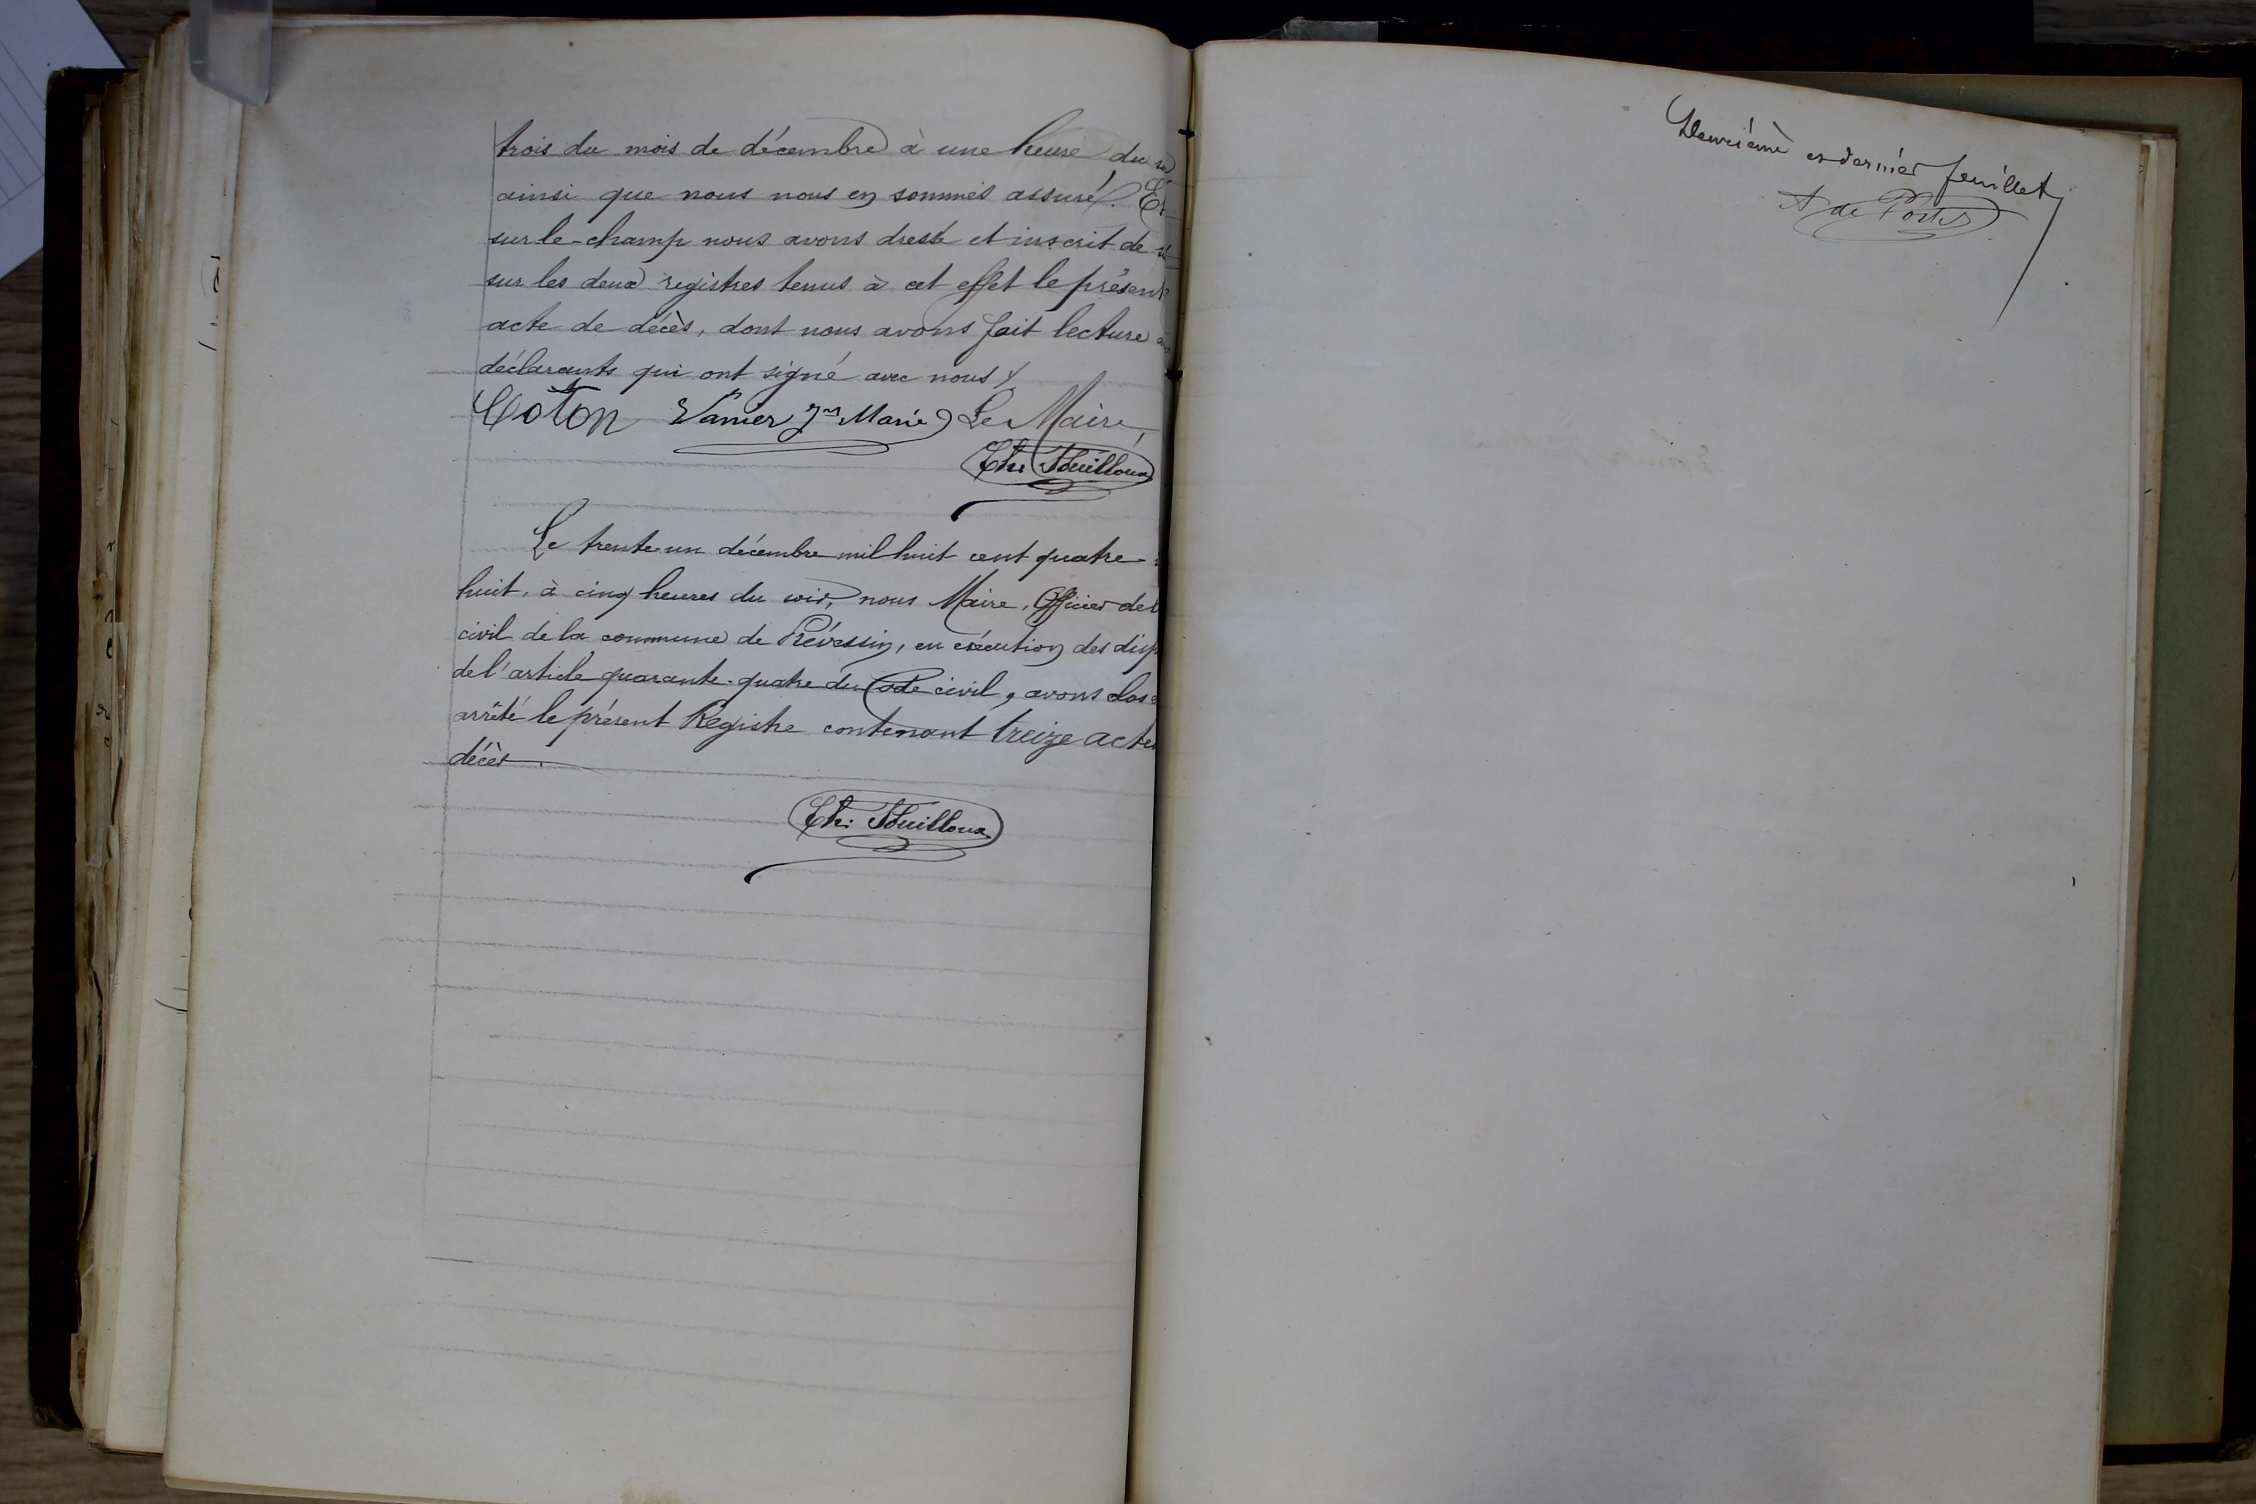 trois du mois de décembre à une heure du
ainsi que nous nous en sommes assuré. Et
sur-le-champ nous avons dressé et inscrit de
sur les deux registres tenus à cet effet le présent
acte de décès, dont nous avons fait lecture
déclarants qui ont signé avec nous
Coton Vanier Jn Marie Le Maire,
Fouilloux
Le trente-un décembre mil huit cent quatre-
huit, à cinq heures du soir, nous Maire, Officier de l
civil de la commune de Prévessin, en exécution des disp
de l'article quarante-quatre du Code civil, avons clos
arrêté le présent Registre contenant treize actes
décès.
Fouilloux
et dernier feuillet
A de